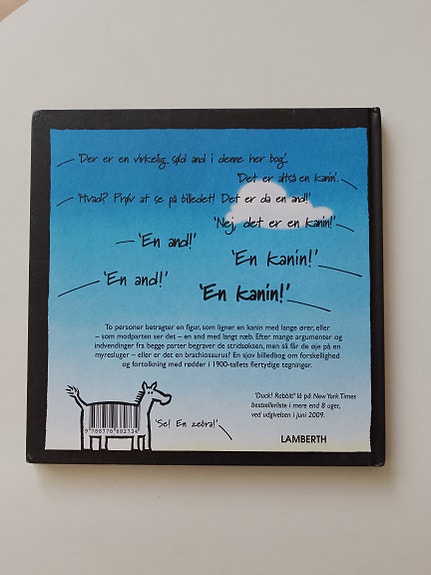 'Der er en virkelig sød and i denne her bog'.
'Det er altså en kanin'.
'Hvad? Prøv at se på billedet! Det er da en and!'
'Nej, det er en kanin!'
'En and!'
'En kanin!'
'En and!'
'En kanin!'
To personer betragter en figur, som ligner en kanin med lange ører, eller
– som modparten ser det – en and med langt næb. Efter mange argumenter og
indvendinger fra begge parter begraver de stridsøksen, men så får de øje på en
myresluger – eller er det en brachiosaurus? En sjov billedbog om forskellighed
og fortolkning med rødder i 1900-tallets flertydige tegninger.
'Duck! Rabbit!' lå på New York Times
bestsellerliste i mere end 8 uger,
ved udgivelsen i juni 2009.
'Se! En zebra!'
LAMBERTH